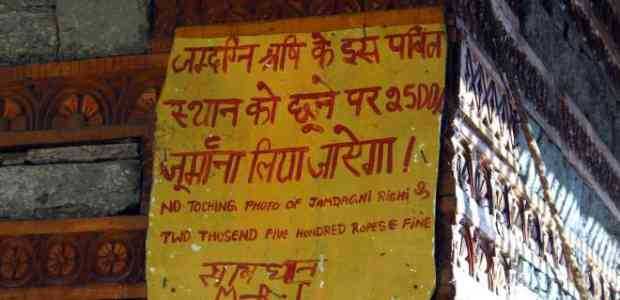 जमदग्नि ऋषि के इस पवित्र
स्थान को छूने पर 2500/
जूर्माना लिया जायेगा!
NO TOCHING PHOTO OF JAMDAGNI RISHI &
TWO THUSEND FIVE HUNDRED ROPESE FINE
सावधान